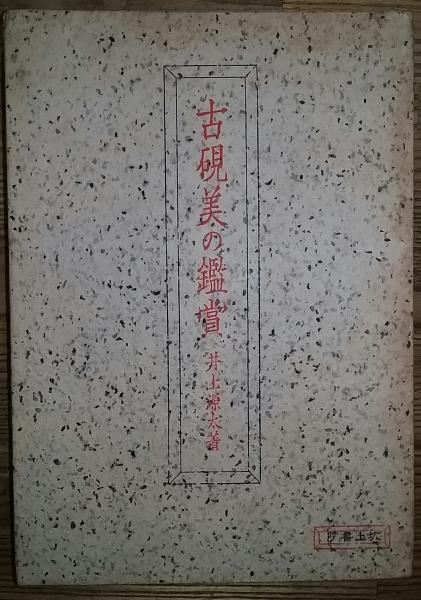 古硯美の鑑賞
井上源太著
坎上書院